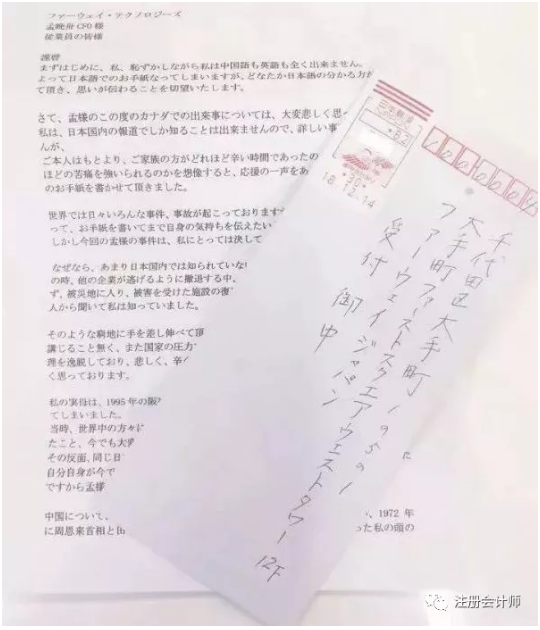 ファーウェイ・テクノロジーズ
孟晩舟CFO様
従業員の皆様
謹啓
まずはじめに、私、恥ずかしながら私は中国語も英語も全く出来ません。
よって日本語でのお手紙なってしまいますが、どなたか日本語の分かる方に
て頂き、思いが伝わることを切望いたします。
さて、孟様のこの度のカナダでの出来事については、大変悲しく思っ
私は、日本国内の報道でしか知ることは出来ませんので、詳しい事
んが、
ご本人はもとより、ご家族の方がどれほど辛い時間であったの
ほどの苦痛を強いられるのかを想像すると、応援の一声をあ
のお手紙を書かせて頂きました。
世界では日々いろんな事件、事故が起こっておりますが
って、お手紙を書いてまで自身の気持ちを伝えたい
しかし今回の孟様の事件は、私にとっては決して
なぜなら、あまり日本国内では知られていない
の時、他の企業が逃げるように撤退する中、
ず、被災地に入り、被害を受けた施設の復
人から聞いて私は知っていました。
そのような窮地に手を差し伸べて頂
講じること無く、また国家の圧力
理を逸脱しており、悲しく、辛
く思っております。
私の実母は、1995年の阪
てしまいました。
当時、世界中の方々に
たこと、今でも大
その反面、同じ日
自分自身が今で
ですから孟様
中国について、
、1972年
に周恩来首相と田
った私の顔の
日本郵便
62
18.12.14
千代田区大手町1の5の1
大手町ファーストスクエアウエストタワー12F
ファーウェイジャパン
受付 御中
注册会计师